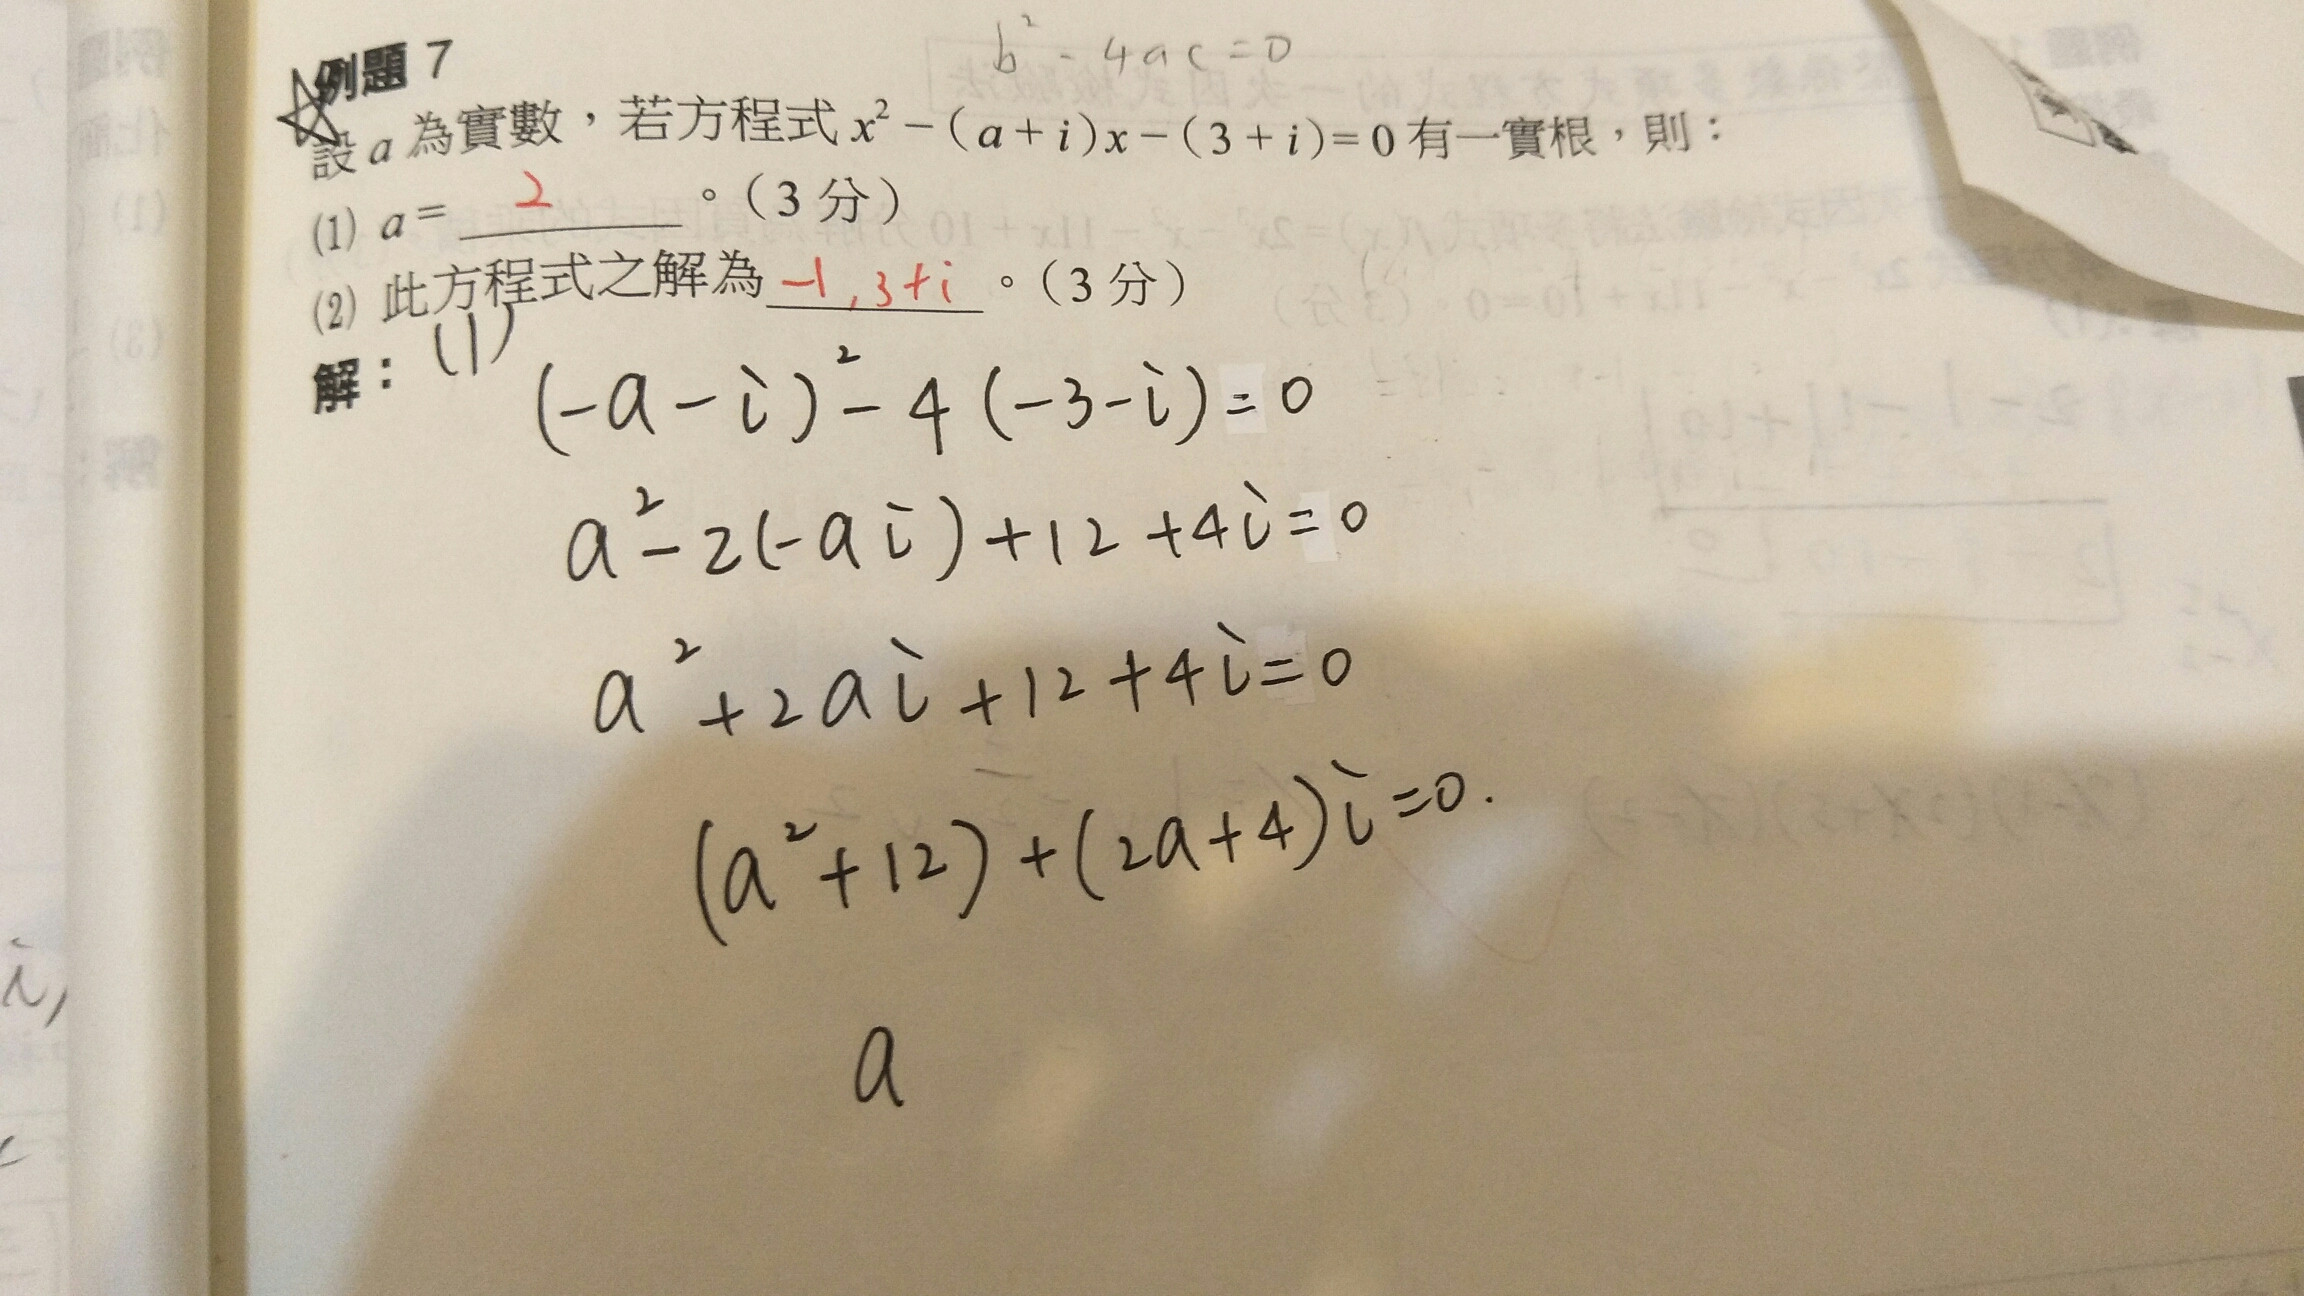 b² - 4ac = 0
例題 7
設 a 為實數，若方程式 x² − (a + i)x − (3 + i) = 0 有一實根，則：
(1) a = 2 。(3 分)
(2) 此方程式之解為 -1, 3+i 。(3 分)
解： (1)
(-a-i)² - 4(-3-i) = 0
a² - 2(-ai) + 12 + 4i = 0
a² + 2ai + 12 + 4i = 0
(a² + 12) + (2a + 4)i = 0.
a
i,